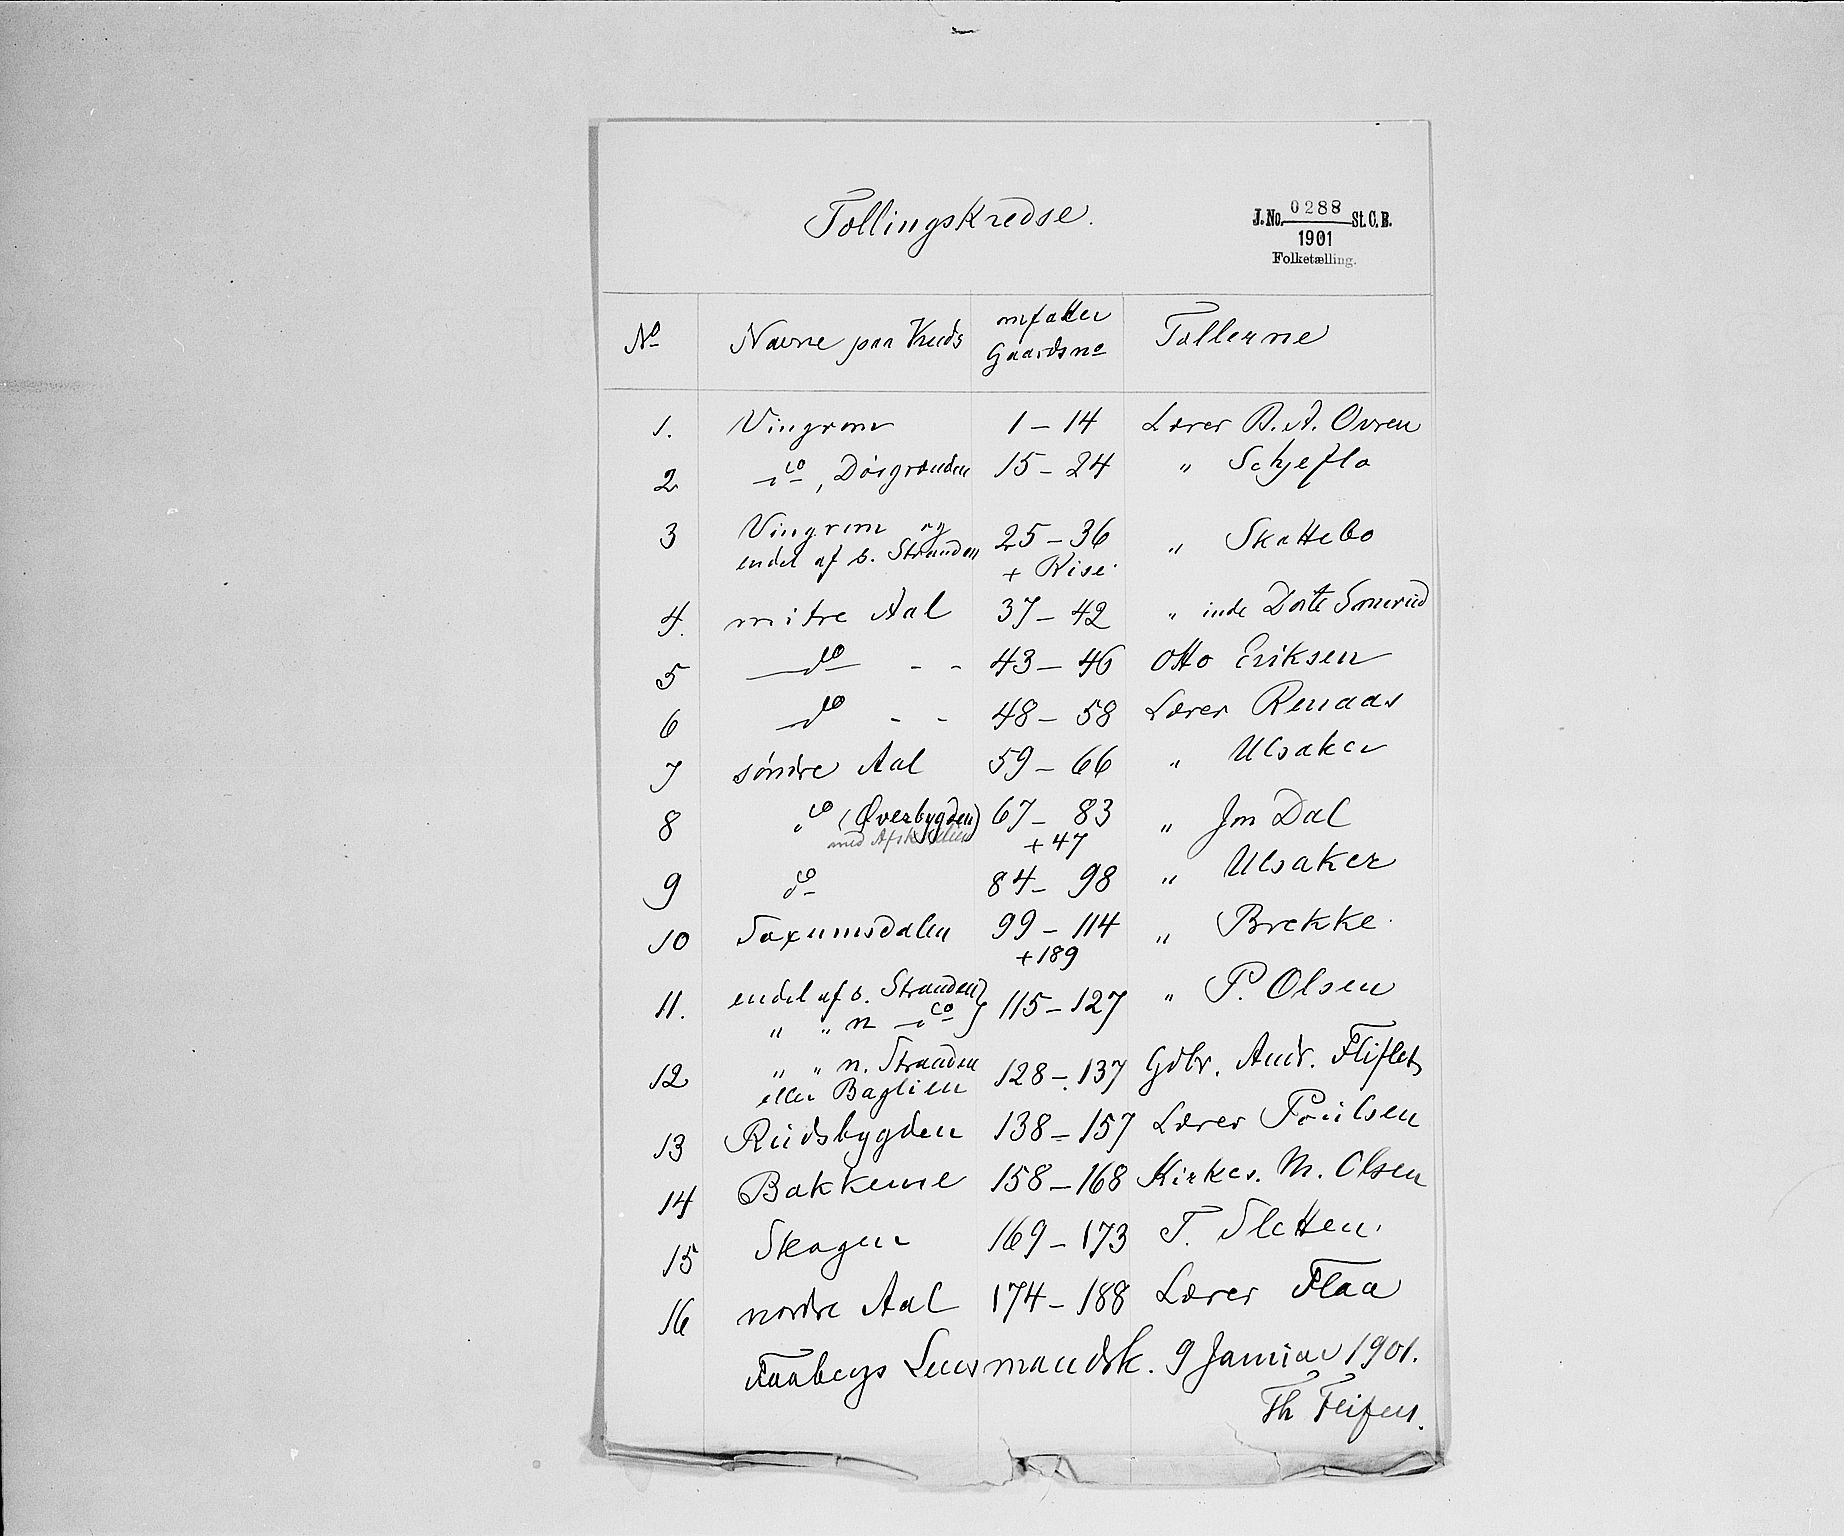 Tællingskredse.
J. No. 0288 St. C. B.
1901
Folketælling.
No Navne paa Kreds omfatter Gaardsno Tællerne
1. Vingrom 1 – 14 Lærer B. A. Ovren
2 do, Døsgrænden 15 – 24 " Schjeflo
3 Vingrom og 25 – 36 " Skattebo
endel af s. Stranden + Rise
4. mitre Aal 37 – 42 " inde
5 do - - 43 – 46 Otto Eriksen
6 do - - 48 – 58 Lærer Renaas
7 søndre Aal 59 – 66 " Ulsaker
8 do (Øverbygden) 67 – 83 " Jon Dal
med + 47
9 do 84 – 98 " Ulsaker
10 Saxumsdalen 99 – 114 " Brekke
+ 189
11. endel af s. Stranden } 115 – 127 " P. Olsen
" " n do }
12 " " n. Stranden 128 – 137 Gdbr. Andr. Fliflet
eller Baglien
13 Rudsbygden 138 – 157 Lærer Poulsen
14 Bakkerne 158 – 168 Kirkes. M. Olsen
15 Skogen 169 – 173 T. Sletten.
16 nordre Aal 174 – 188 Lærer Flaa
Faabergs Lensmandsk. 9 Januar 1901.
Th